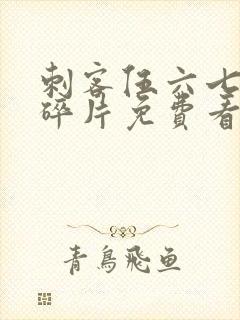 刺客伍六七
碎片免費看
青鳥飛魚